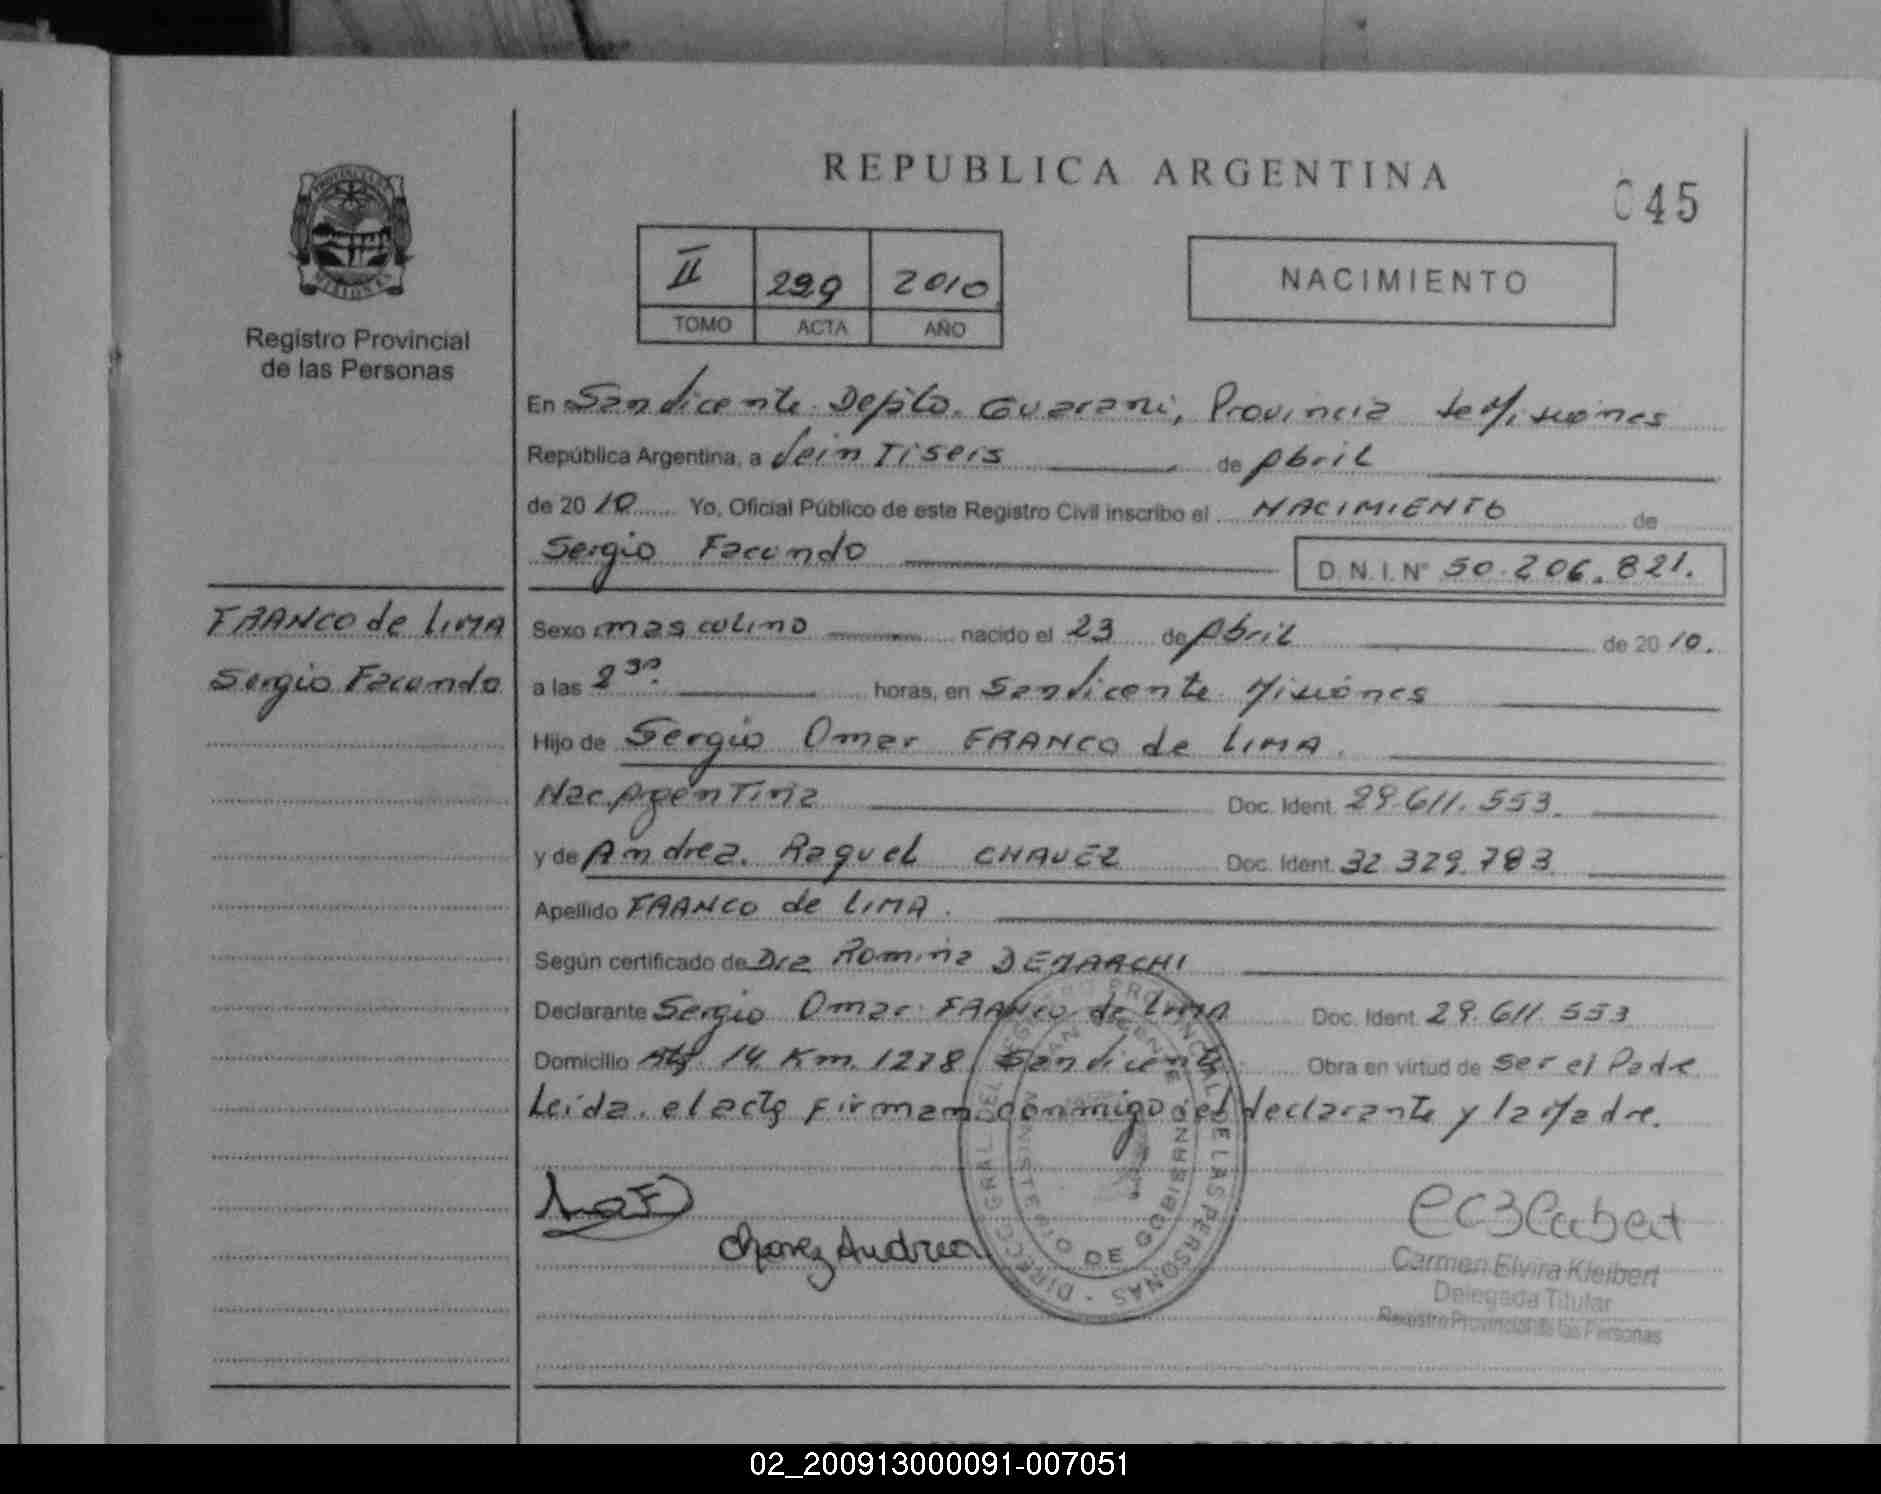 REPUBLICA ARGENTINA
045
PROVINCIA DE
MISIONES
Registro Provincial
de las Personas
II 299 2010
TOMO ACTA AÑO
NACIMIENTO
En San Vicente Depto. Guarani, Provincia de Misiones
República Argentina, a Vein Tiseis de Abril
de 2010 Yo, Oficial Público de este Registro Civil inscribo el NACIMIENTO de
Sergio Facundo D.N.I.Nº 50.206.821.
FRANCO de LIMA
Sergio Facundo
Sexo masculino nacido el 23 de Abril de 2010.
a las 2 30. horas, en San Vicente Misiones
Hijo de Sergio Omar FRANCO de LIMA.
Nac. Argentina Doc. Ident. 29.611.553.
y de Andrea. Raquel CHAVEZ Doc. Ident. 32.329.783
Apellido FRANCO de LIMA.
Según certificado de Dra Romina DEMARCHI
Declarante Sergio Omar FRANCO de LIMA Doc. Ident. 29.611.553
Domicilio 14 Km. 1278 San Vicente Obra en virtud de ser el Padre
Leida. el acta firman conmigo el declarante y la Madre.
DIRECC. GRAL. DEL REGISTRO PROVINCIAL DE LAS PERSONAS
MINISTERIO DE GOBIERNO
SAN VICENTE
Chavez Andrea
Carmen Elvira Kleibert
Delegada Titular
Registro Provincial de las Personas
02_200913000091-007051